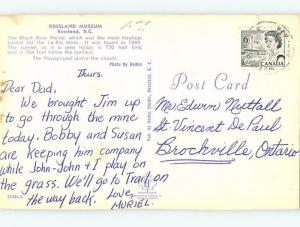 ROSSLAND MUSEUM
Rossland, B.C.
The Black Bear Portal which was the main haulage
tunnel for the Le-Roi Mine. It was found in 1889.
The tunnel, as it is seen today, is 720 feet long
The Playground above the clouds.
Photo By
Thurs.
Dear Dad,
We brought Jim up
to go through the mine
today. Bobby and Susan
are keeping him company
while John-John & I play on
the grass. We'll go to Trail on
the way back. Love,
MURIEL.
Post Card
Mr Edwin Nuthall
St. Vincent De Paul
Brockville, Ontario
6